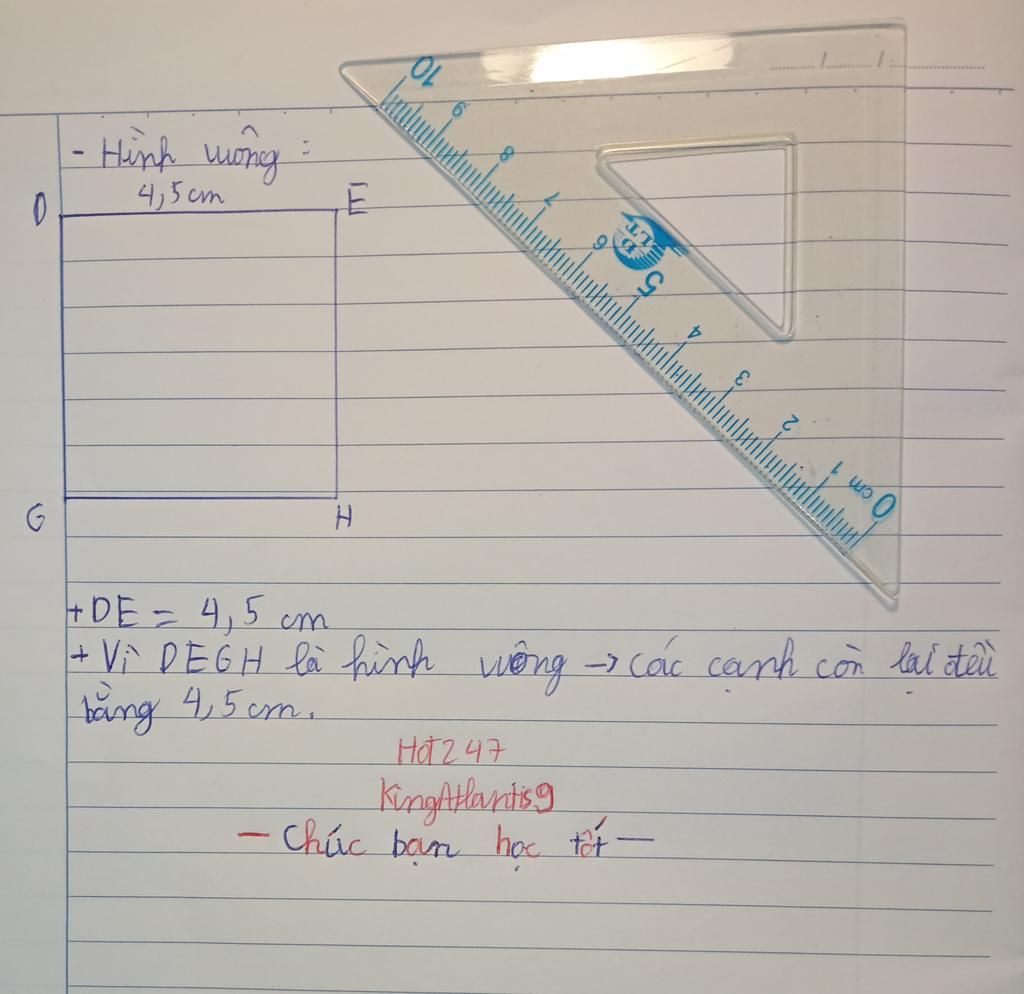 - Hình vuông :
4,5 cm
D
E
G
H
+ DE = 4,5 cm
+ Vì DEGH là hình vuông → các cạnh còn lại đều
bằng 4,5 cm.
Hot247
KingAtlantis9
- Chúc bạn học tốt -
10
9
8
7
6
5
4
3
2
1
0 cm
DLT